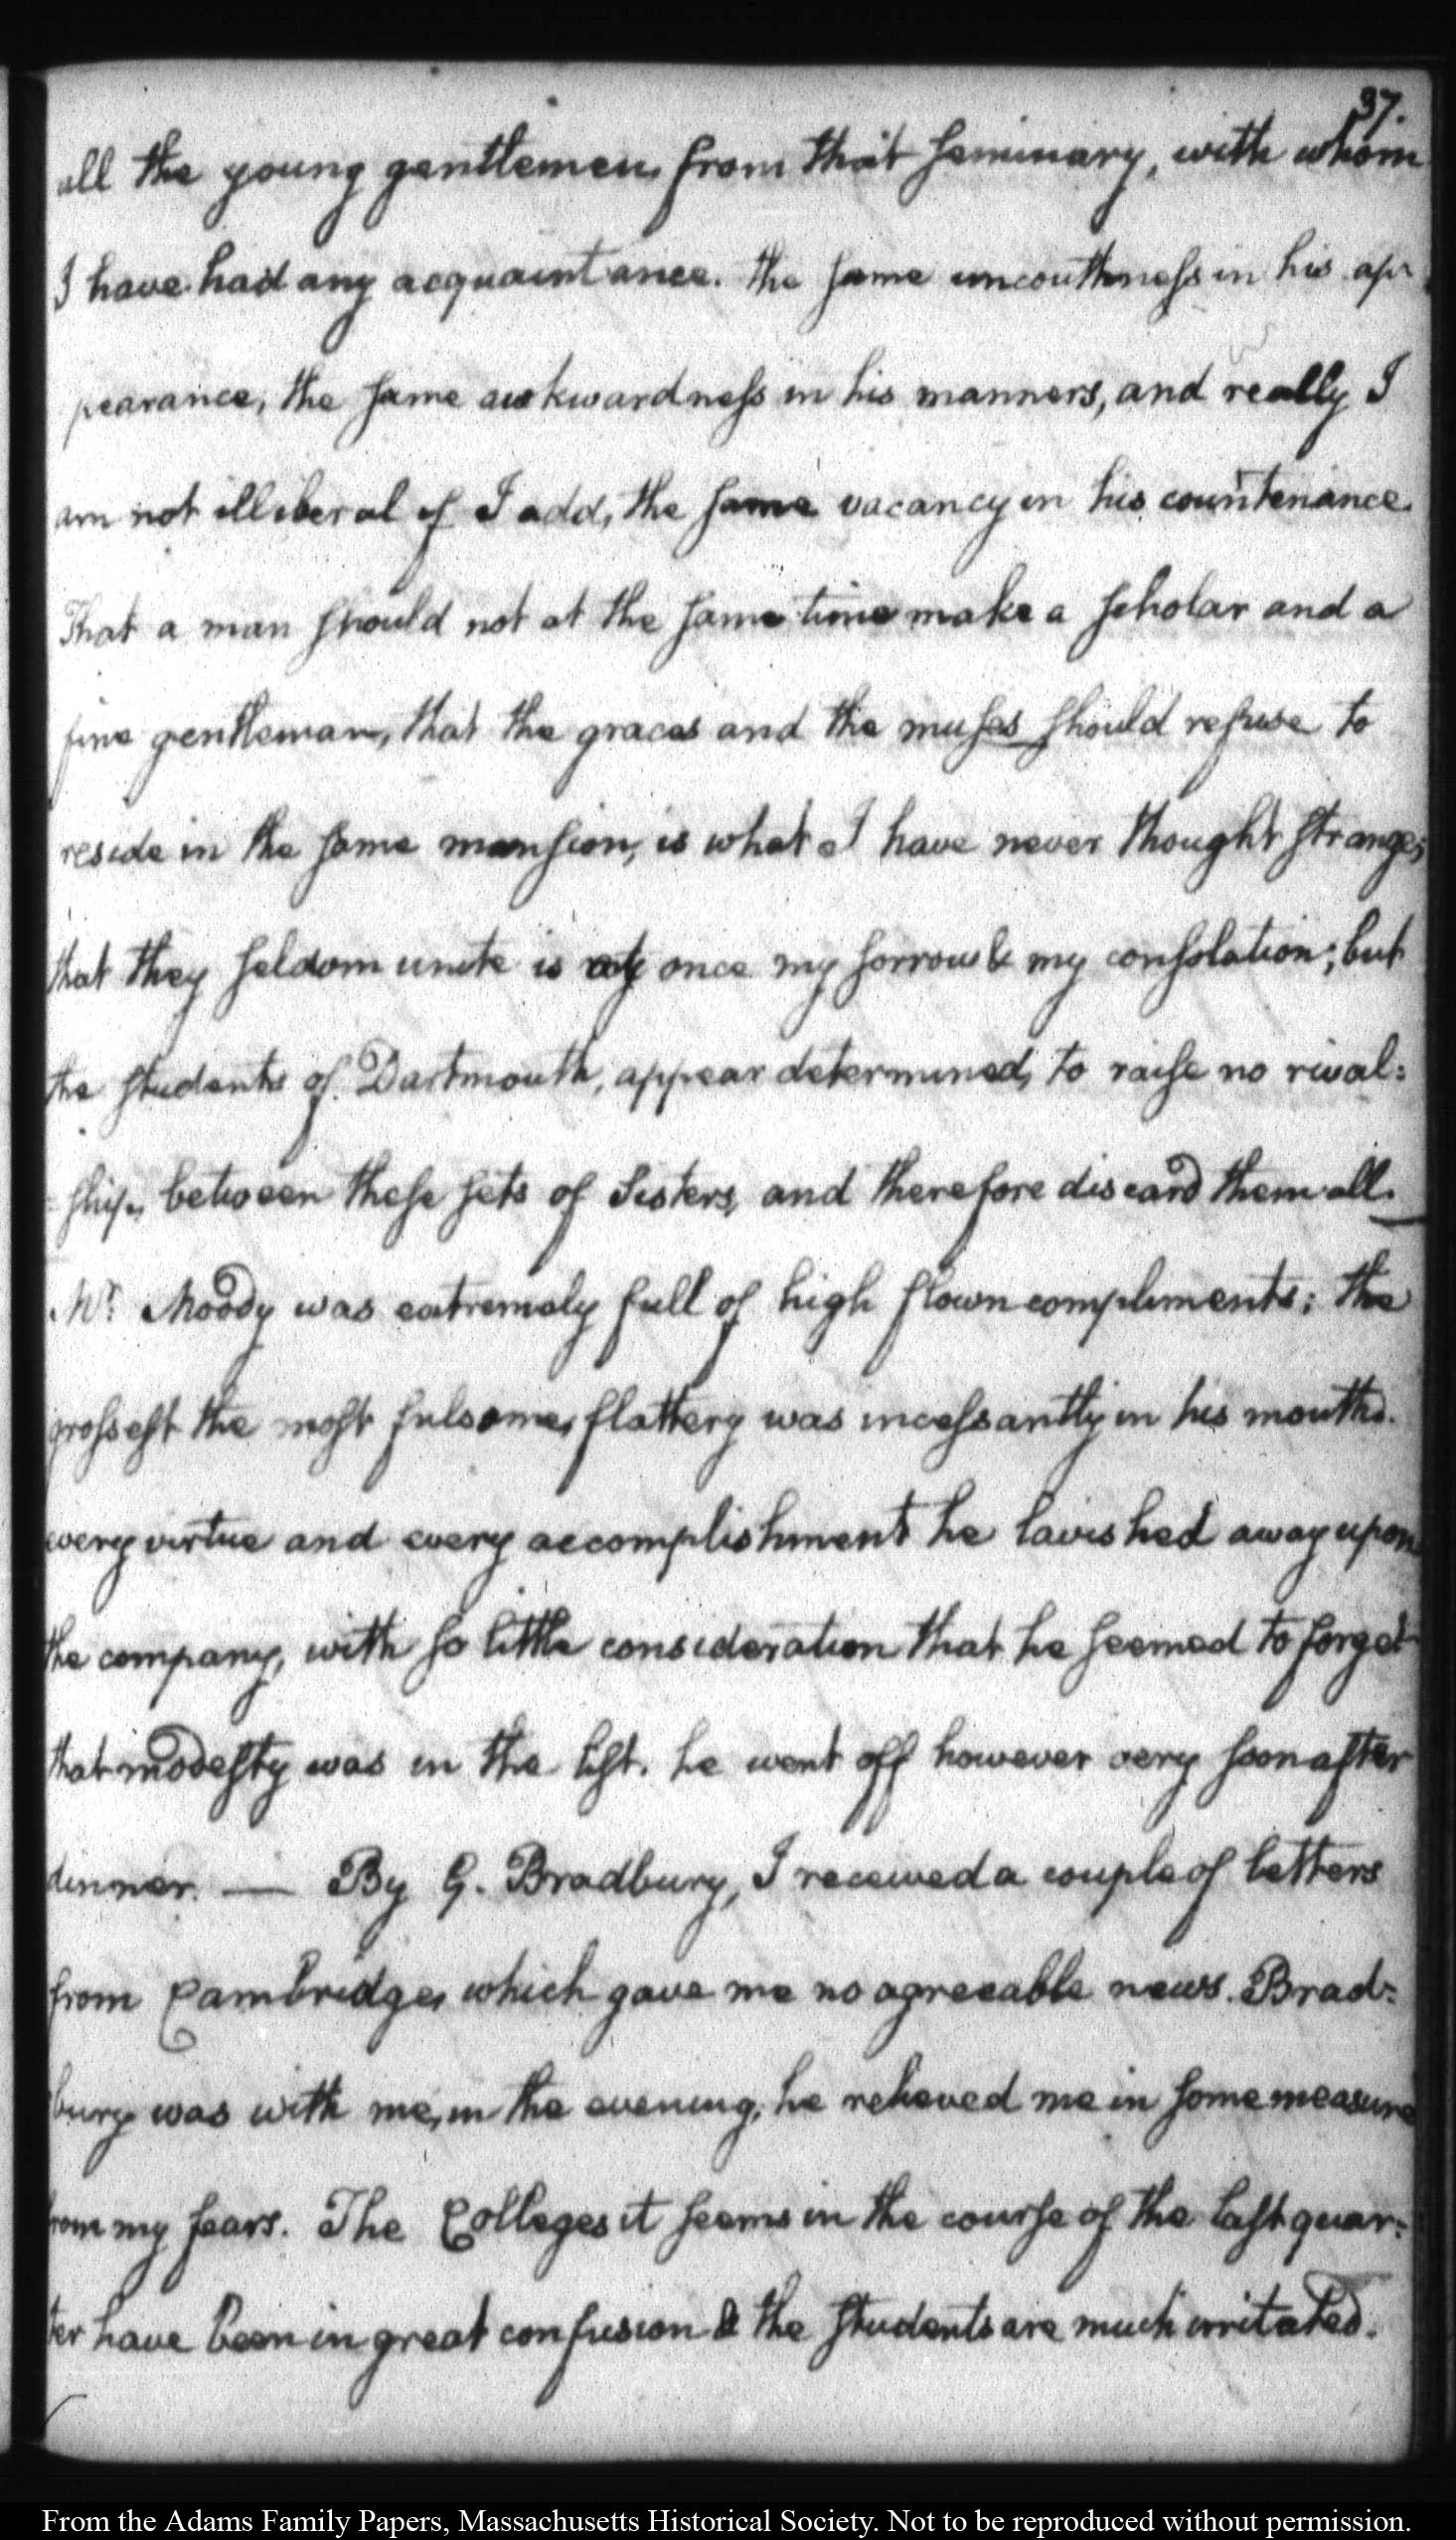 37.
all the young gentlemen from that seminary, with whom
I have had any acquaintance. the same uncouthness in his ap
pearance, the same awkwardness in his manners, and really I
am not illiberal if I add, the same vacancy in his countenance.
That a man should not at the same time make a scholar and a
fine gentleman, that the graces and the muses should refuse to
reside in the same mansion, is what I have never thought strange;
that they seldom unite is at once my sorrow & my consolation; but
the students of Dartmouth, appear determined, to raise no rival=
=ship, between these sets of Sisters, and therefore discard them all.
Mr. Moody was extremely full of high flown compliments; the
grossest the most fulsome, flattery was incessantly in his mouth.
every virtue and every accomplishment he lavished away upon
the company, with so little consideration that he seemed to forget
that modesty was in the list. he went off however very soon after
dinner. — By G. Bradbury, I received a couple of letters
from Cambridge, which gave me no agreeable news. Brad=
bury was with me, in the evening, he relieved me in some measure
from my fears. The Colleges it seems in the course of the last quar=
ter have been in great confusion & the students are much irritated.
From the Adams Family Papers, Massachusetts Historical Society. Not to be reproduced without permission.